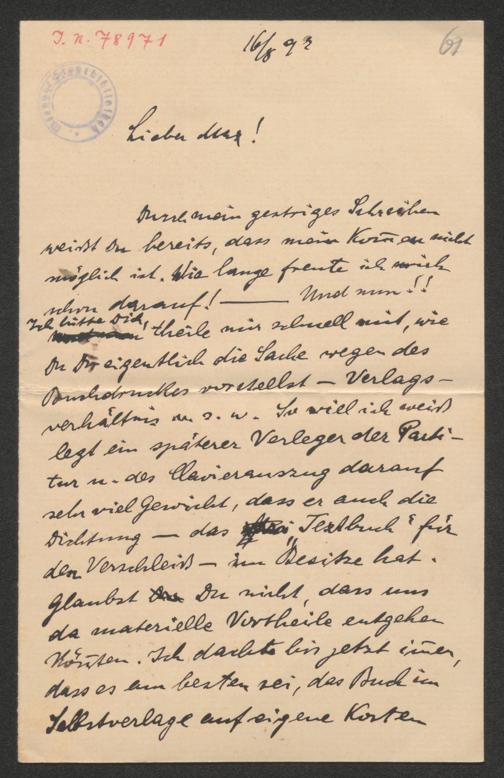 I. N. 78971
16/8 93
61
Lieber Max!
Durch mein gestriges Schreiben
weißt Du bereits, dass mein Kom̄en nicht
möglich ist. Wie lange freute ich mich
schon darauf! — Und nun!!
Ich bitte Dich, theile mir schnell mit, wie
Du Dir eigentlich die Sache wegen des
Buchdruckes vorstellst – Verlags-
verhältnis u. s. w. So viel ich weiß
legt ein späterer Verleger der Parti-
tur u. des Clavierauszug darauf
sehr viel Gewicht, dass er auch die
Dichtung – das „Textbuch“ für
den Verschleiß – im Besitze hat.
Glaubst Du nicht, dass uns
da materielle Vortheile entgehen
könnten. Ich dachte bis jetzt im̄er,
dass es am besten sei, das Buch im
Selbstverlage auf eigene Kosten